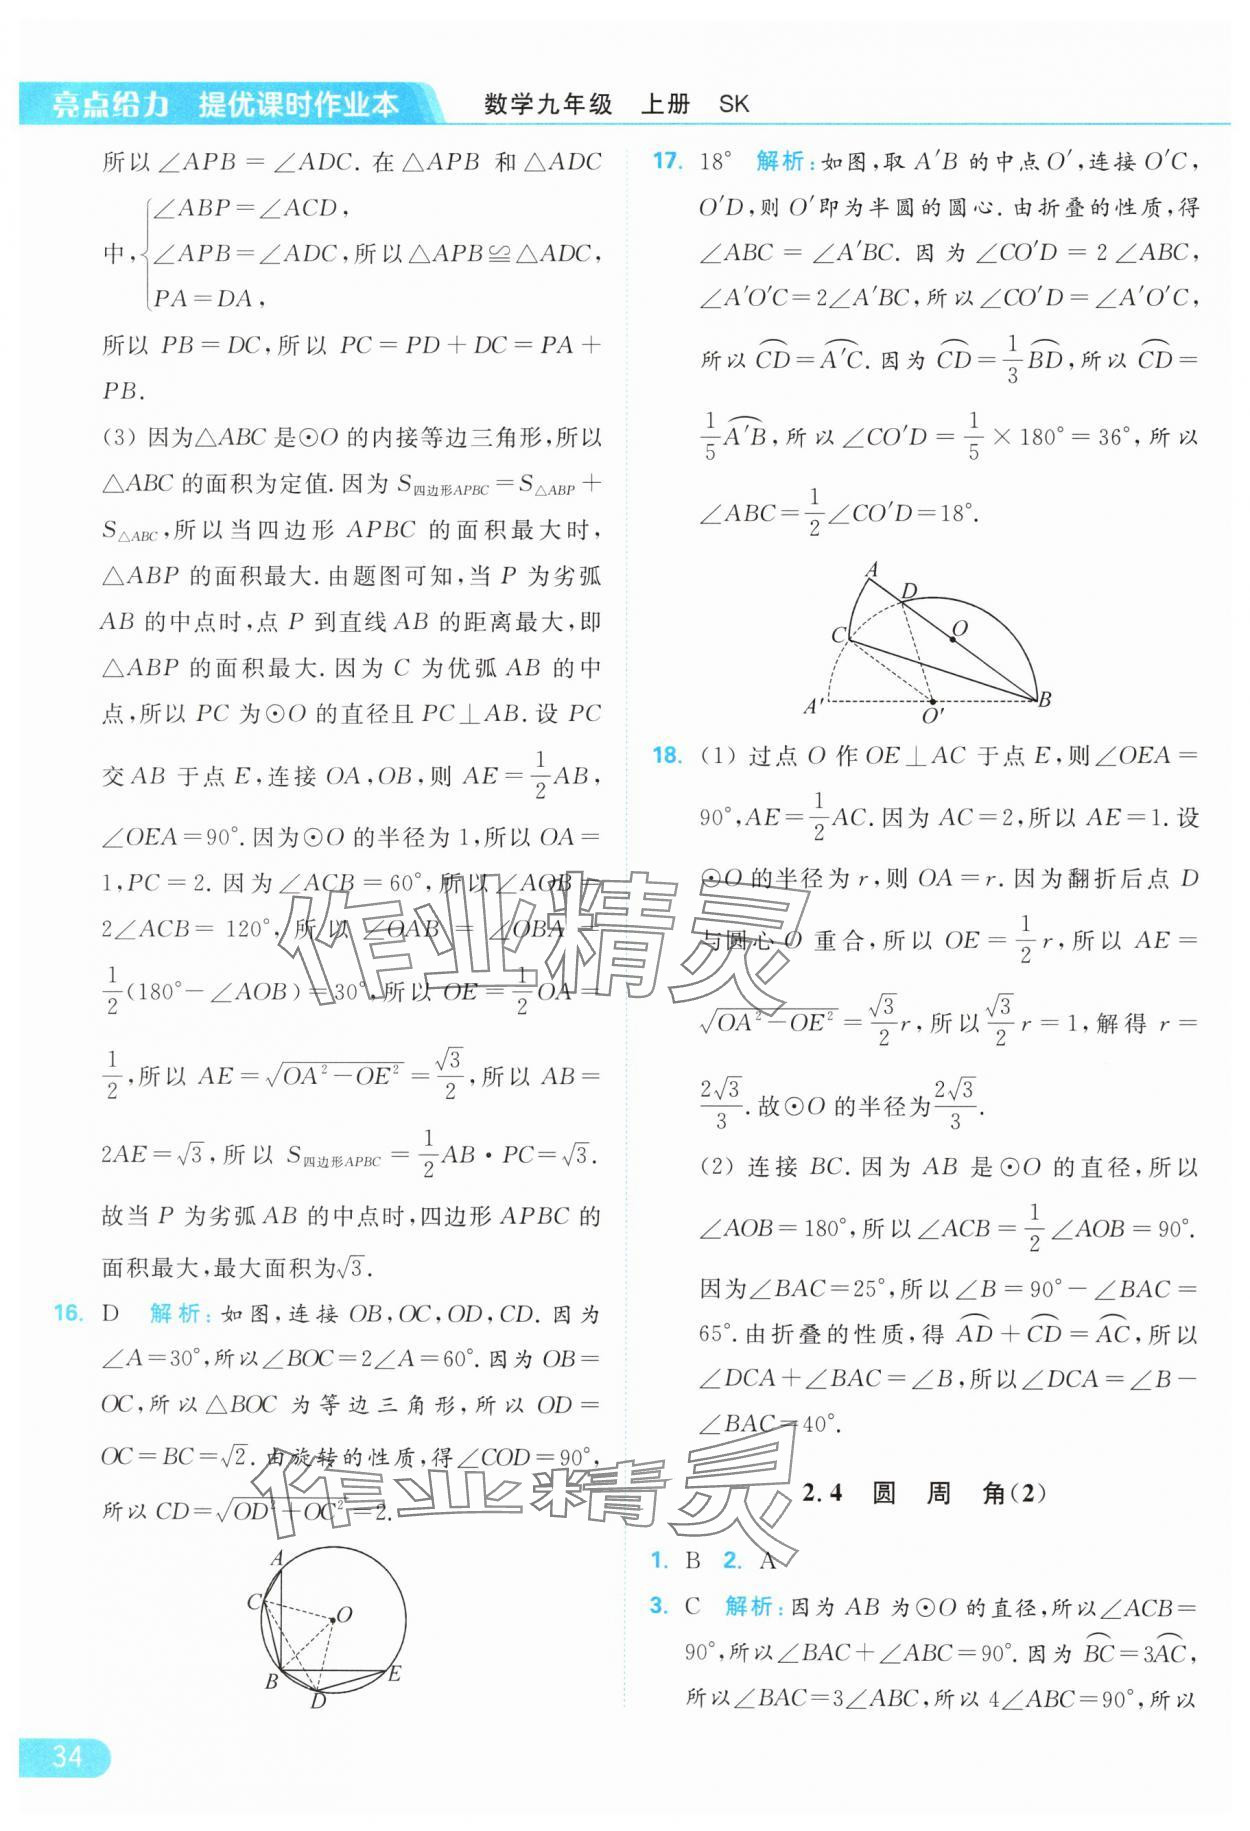 亮点给力 提优课时作业本 数学九年级 上册 SK
所以∠APB=∠ADC.在△APB 和△ADC
∠ABP=∠ACD,
中,∠APB=∠ADC,所以△APB≌△ADC,
PA=DA,
所以 PB=DC,所以 PC=PD+DC=PA+
PB.
(3) 因为△ABC是⊙O的内接等边三角形,所以
△ABC的面积为定值.因为 S四边形APBC=S△ABP+
S△ABC,所以当四边形 APBC 的面积最大时,
△ABP 的面积最大.由题图可知,当 P 为劣弧
AB 的中点时,点 P 到直线 AB 的距离最大,即
△ABP 的面积最大.因为 C 为优弧 AB 的中
点,所以 PC 为⊙O的直径且PC⊥AB.设 PC
交 AB 于点 E,连接 OA,OB,则 AE=1/2AB,
∠OEA=90°.因为⊙O的半径为1,所以OA=
1,PC=2.因为∠ACB=60°,所以∠AOB=
2∠ACB=120°,所以∠OAB=∠OBA=
1/2(180°-∠AOB)=30°,所以 OE=1/2OA=
1/2,所以 AE=√(OA²-OE²)=√3/2,所以 AB=
2AE=√3,所以 S四边形APBC=1/2AB·PC=√3.
故当 P 为劣弧 AB 的中点时,四边形 APBC 的
面积最大,最大面积为√3.
16. D 解析:如图,连接 OB,OC,OD,CD.因为
∠A=30°,所以∠BOC=2∠A=60°.因为 OB=
OC,所以△BOC 为等边三角形,所以 OD=
OC=BC=√2.由旋转的性质,得∠COD=90°,
所以 CD=√(OD²+OC²)=2.
A
C
O
B
E
D
34
17. 18° 解析:如图,取 A′B 的中点O′,连接O′C,
O′D,则 O′即为半圆的圆心.由折叠的性质,得
∠ABC=∠A′BC.因为∠CO′D=2∠ABC,
∠A′O′C=2∠A′BC,所以∠CO′D=∠A′O′C,
所以⌒CD=⌒A′C.因为⌒CD=1/3⌒BD,所以⌒CD=
1/5⌒A′B,所以∠CO′D=1/5×180°=36°,所以
∠ABC=1/2∠CO′D=18°.
A
D
C
O
A′
O′
B
18. (1) 过点 O 作 OE⊥AC 于点 E,则∠OEA=
90°,AE=1/2AC.因为 AC=2,所以 AE=1.设
⊙O 的半径为 r,则 OA=r.因为翻折后点 D
与圆心 O 重合,所以 OE=1/2r,所以 AE=
√(OA²-OE²)=√3/2r,所以√3/2r=1,解得 r=
2√3/3.故⊙O 的半径为2√3/3.
(2) 连接 BC.因为 AB 是⊙O 的直径,所以
∠AOB=180°,所以∠ACB=1/2∠AOB=90°.
因为∠BAC=25°,所以∠B=90°-∠BAC=
65°.由折叠的性质,得⌒AD+⌒CD=⌒AC,所以
∠DCA+∠BAC=∠B,所以∠DCA=∠B-
∠BAC=40°.
2.4 圆 周 角(2)
1. B 2. A
3. C 解析:因为 AB 为⊙O 的直径,所以∠ACB=
90°,所以∠BAC+∠ABC=90°.因为⌒BC=3⌒AC,
所以∠BAC=3∠ABC,所以 4∠ABC=90°,所以
作业精灵
作业精灵